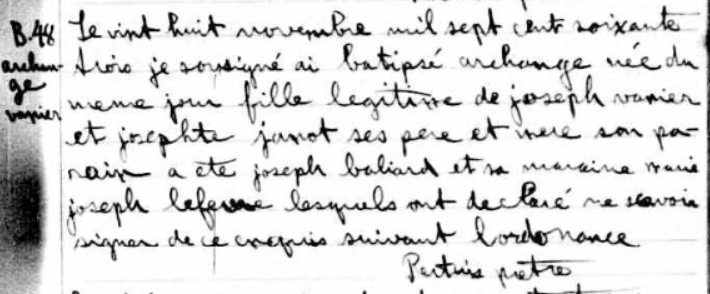 B.48
archan-
ge
vanier
Le vint huit novembre mil sept cent soixante
trois je sousigné ai batipsé archange née du
meme jour fille legitime de joseph vanier
et josephte janot ses pere et mere son pa-
rain a ete joseph baliard et sa maraine marie
joseph lefevre lesquels ont declaré ne scavoir
signer de ce enquis suivant lordonance
Pertuis pretre